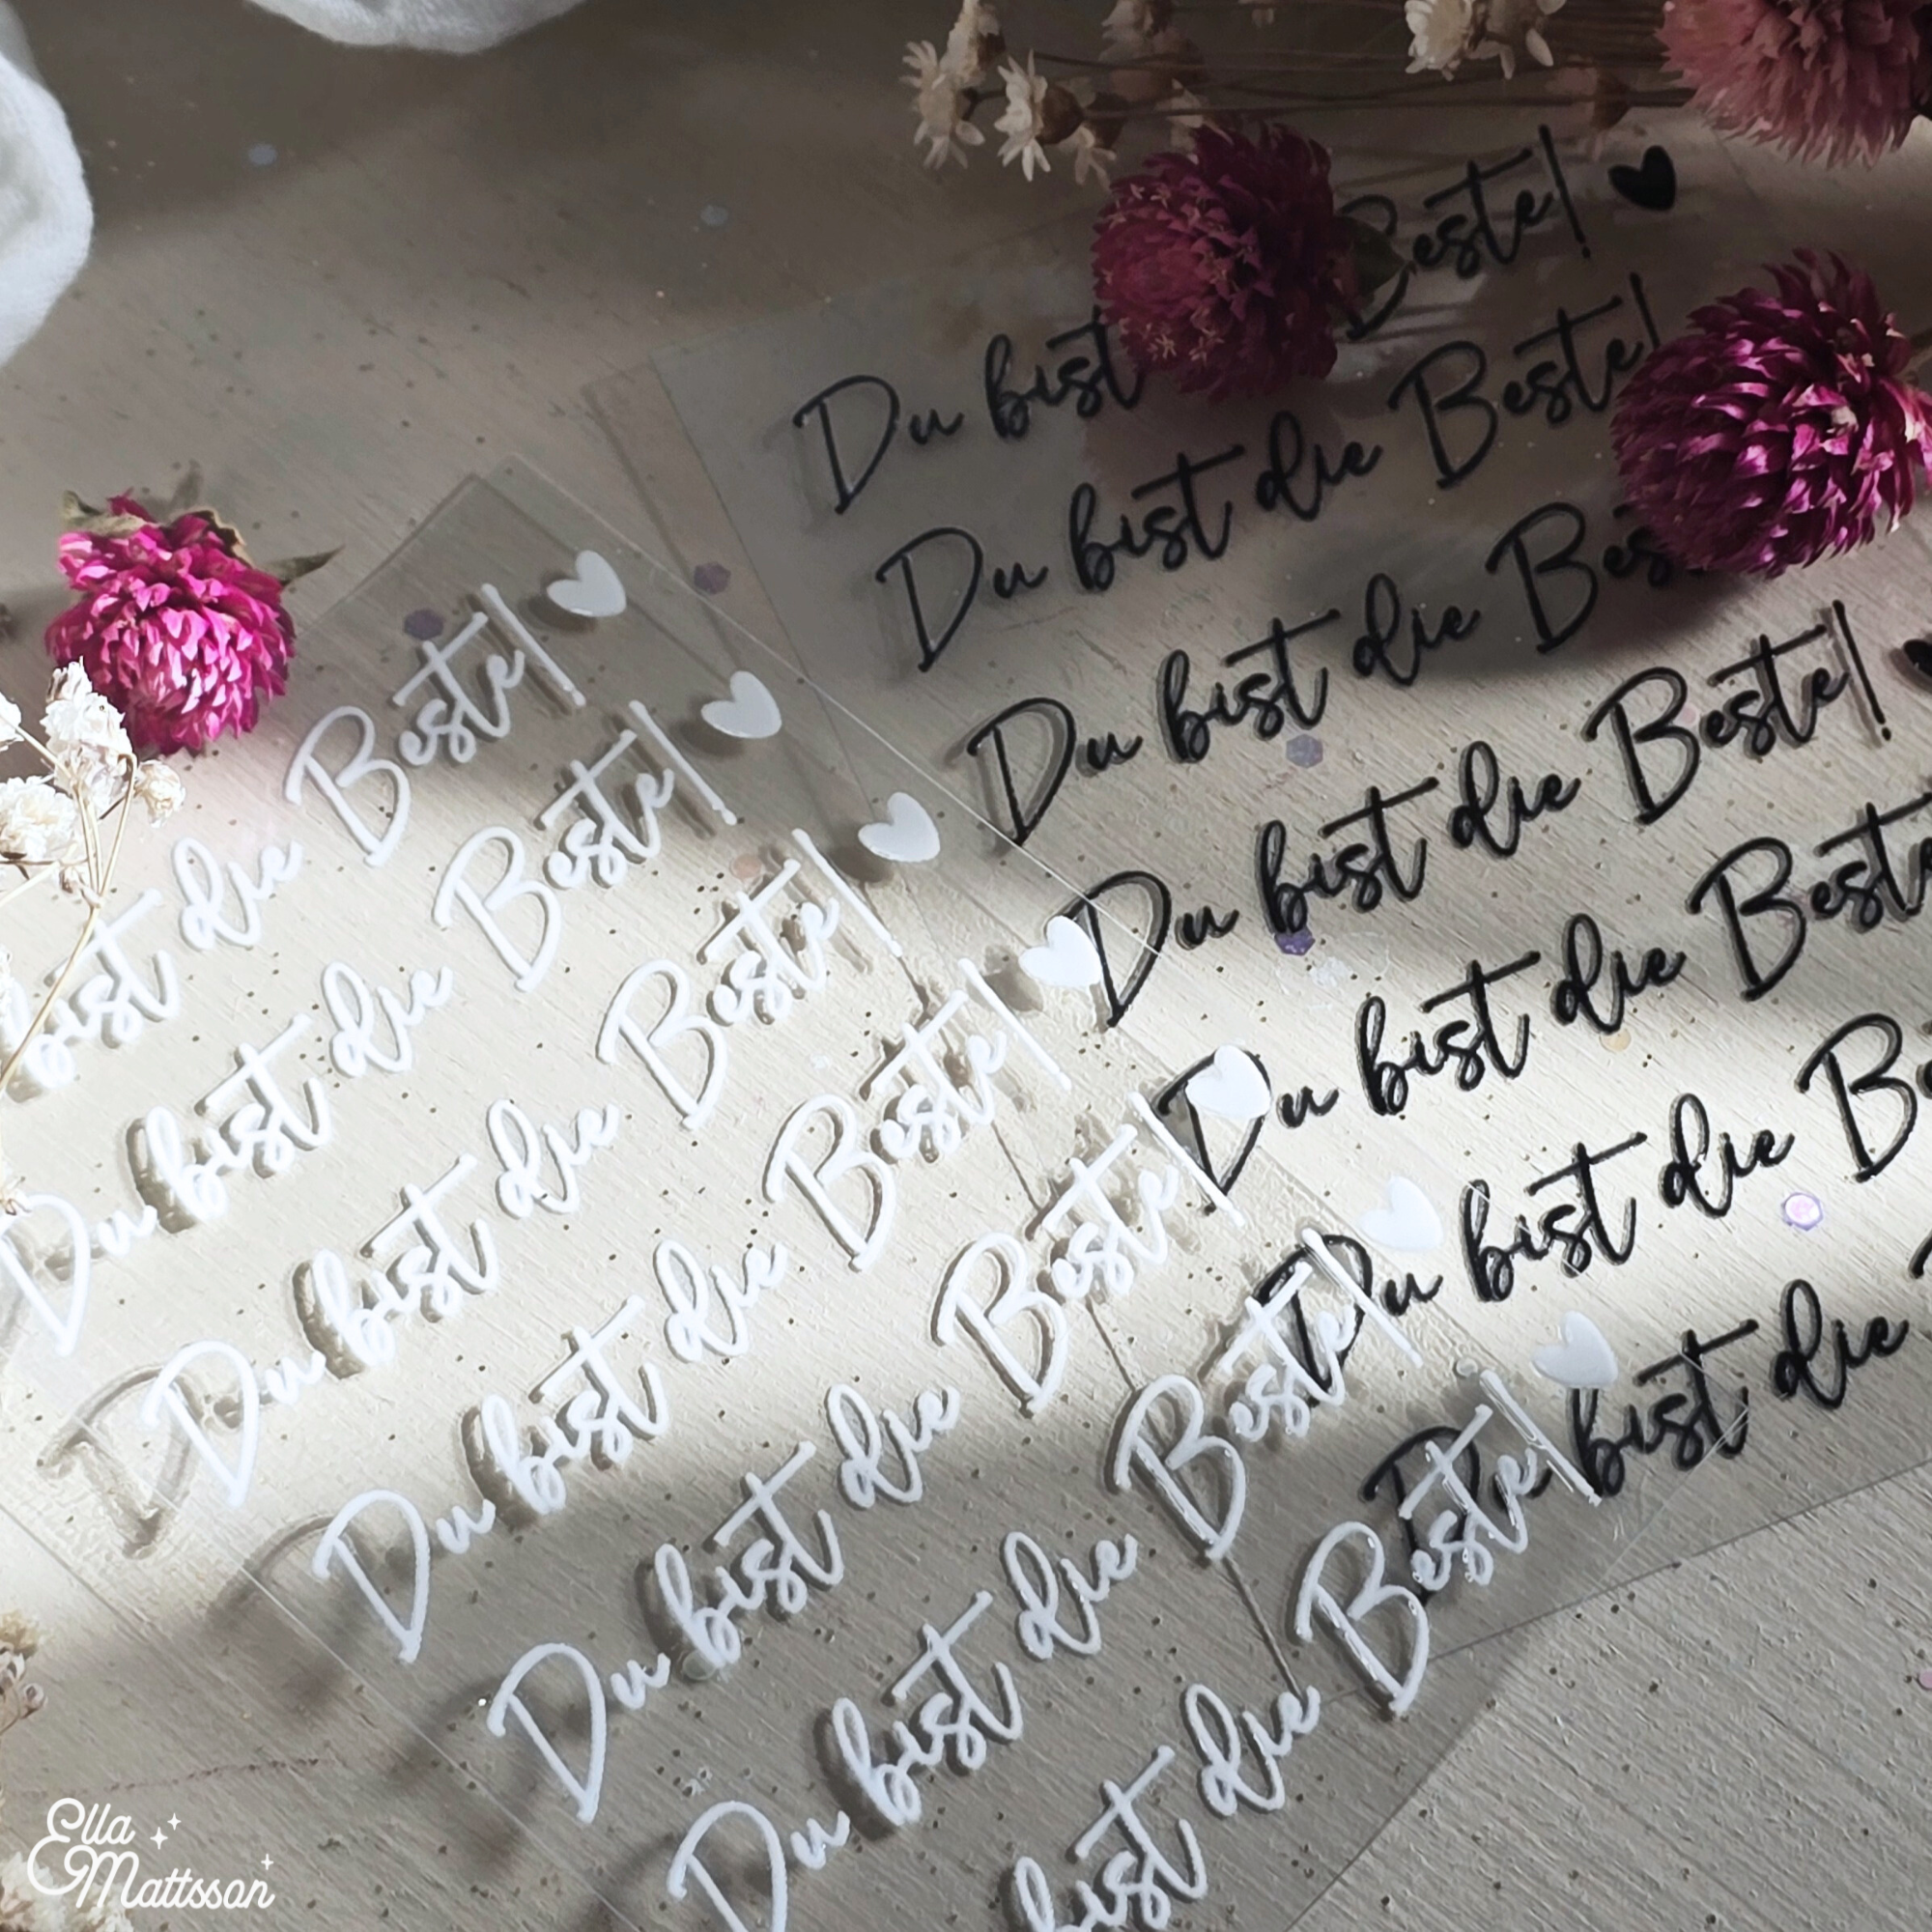 Du bist Beste! ♥
Du bist die Beste!
Du bist die Bes
Du bist die Beste!
Du bist die Beste
Du bist die Be
Du bist die
bist die Beste! ♥
Du bist die Beste! ♥
Du bist die Beste! ♥
Du bist die Beste! ♥
Du bist die Beste! ♥
Du bist die Beste! ♥
bist die Beste! ♥
Ella
Mattsson